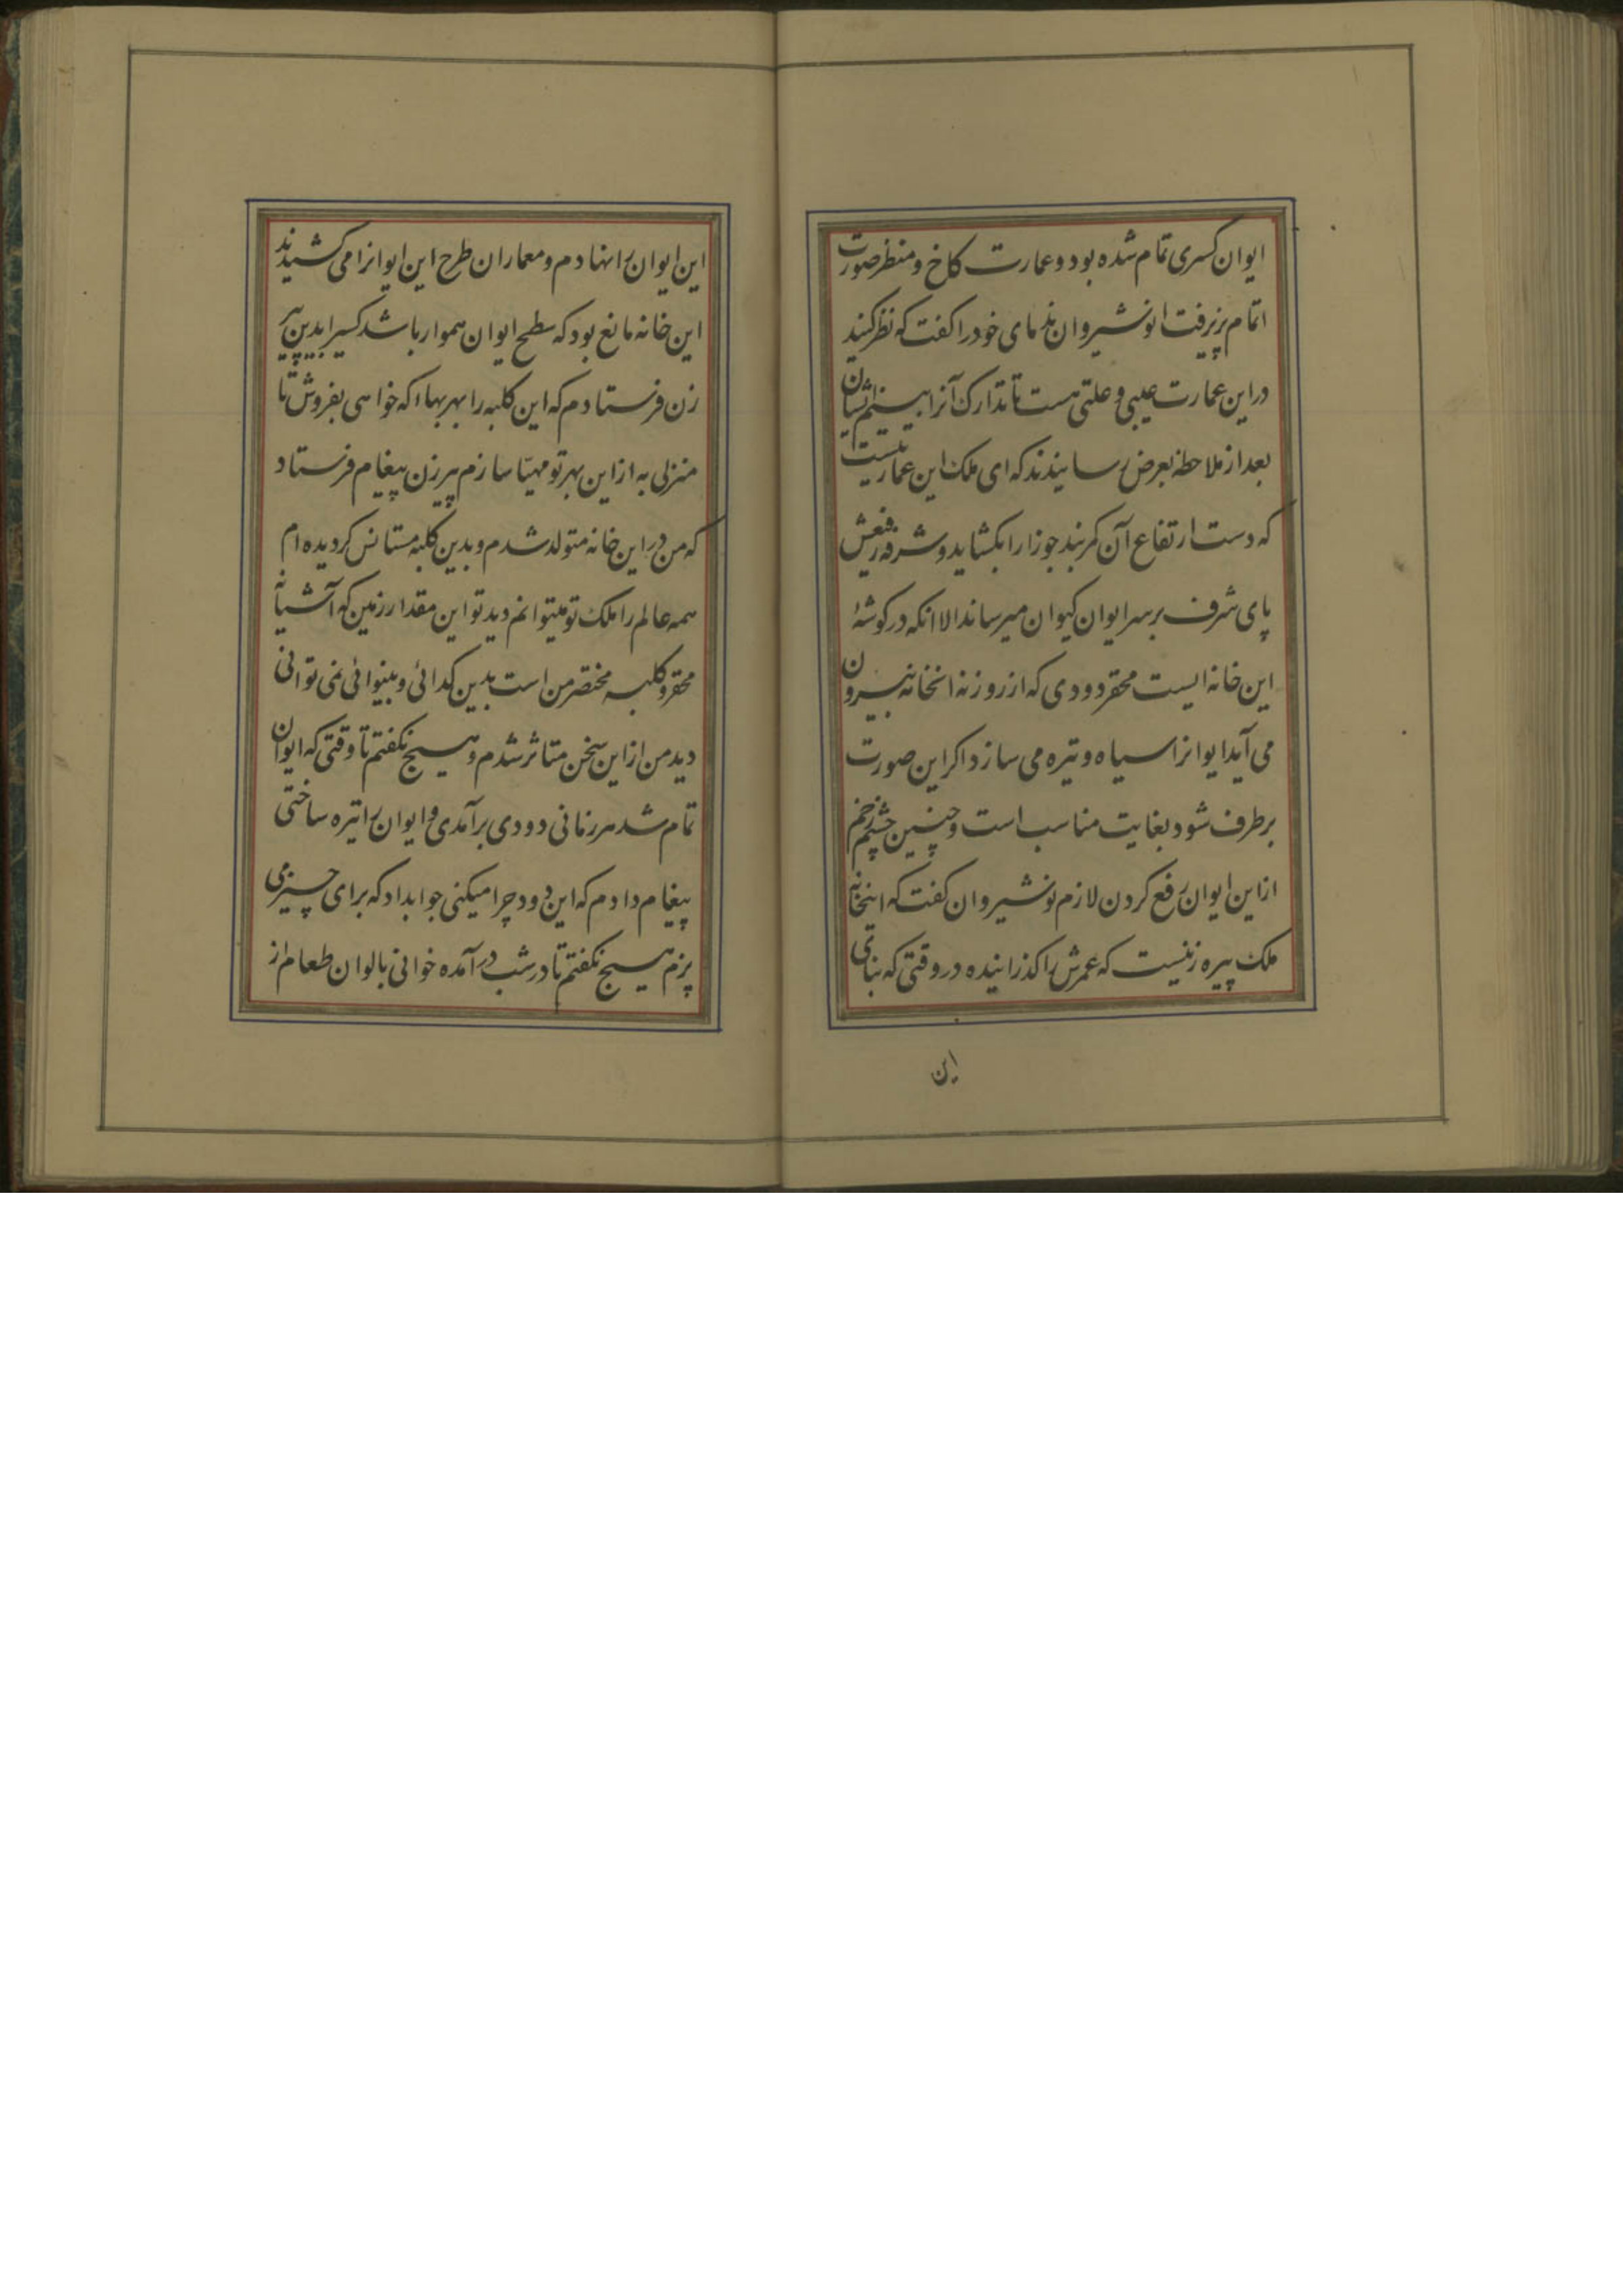 ایوان کسری تمام شده بود و عمارت کاخ و منظر صورت
اتمام پزیرفت انوشیروان ندمای خود را کفت که نظر کنید
در این عمارت عیبی و علتی هست تا تدارک آنرا ببینم ایشان
بعد از ملاحظه بعرض رسانیدند که ای ملک این عمارتیست
که دست ارتفاع آن کمربند جوزا را بکشاید و شرفه رفیعش
پای شرف بر سر ایوان کیوان میرساند الا انکه در کوشهٔ
این خانه ایست محقر دودی که از روزنه انخانه بیرون
می آید ایوانرا سیاه و تیره می سازد اکر این صورت
برطرف شود بغایت مناسب است و چنین چشم زخم
از این ایوان رفع کردن لازم نوشیروان کفت که اینخانه
ملک پیره زنیست که عمرش را کذرانیده در وقتی که بنای
این
این ایوان را نهادم و معماران طرح این ایوانرا می کشیدند
این خانه مانع بود که سطح ایوان هموار باشد کسیرا بدین پیر
زن فرستادم که این کلبه را بهر بها که خواهی بفروش تا
منزلی به از این بهر تو مهیّا سازم پیرزن پیغام فرستاد
که من در این خانه متولد شدم و بدین کلبه مستانس کردیده ام
همه عالم را ملک تو میتوانم دید تو این مقدار زمین که آشیانه
محقر و کلبه مختصر من است بدین کدائی و بینوائی نمی توانی
دید من از این سخن متاثر شدم و هیچ نکفتم تا وقتی که ایوان
تمام شد هر زمانی دودی برآمدی و ایوان را تیره ساختی
پیغام دادم که این دود چرا میکنی جوابداد که برای چیزی می
پزم هیچ نکفتم تا در شب در آمده خوانی بالوان طعام از